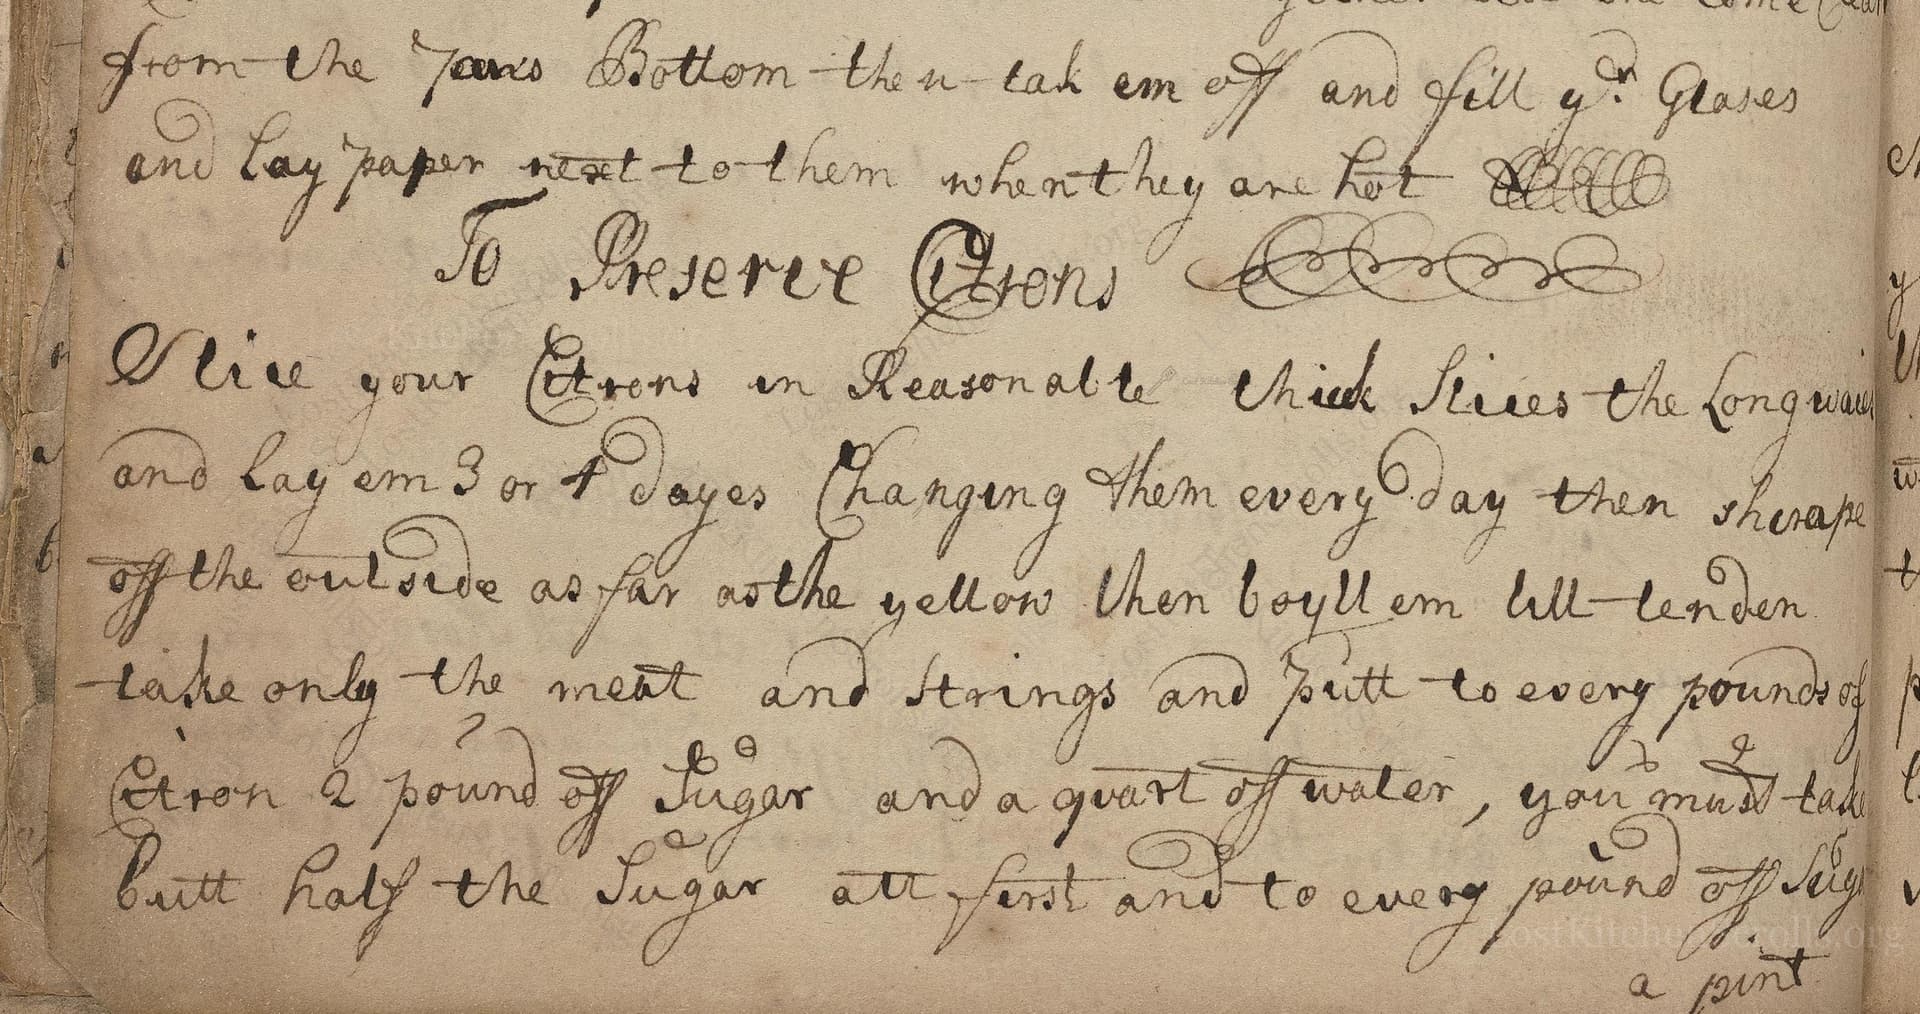 come Clear
from the Pans Bottom then tak em off and fill yr. Glases
and lay paper next to them when they are hot
To Preserve Citrons
Slice your Citrons in Reasonable thick Slices the Longwaies
and lay em 3 or 4 dayes Changing them every day then shcrape
off the outside as far as the yellow then boyll em till tender
take only the meat and strings and putt to every pounds of
Citron 2 pound off Sugar and a quart off water, you must take
butt half the Sugar att first and to every pound off Sugr
a pint
LostKitchenScrolls.org